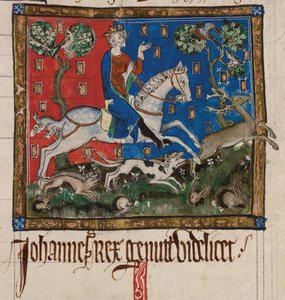 Johannes rex genuit videlicet